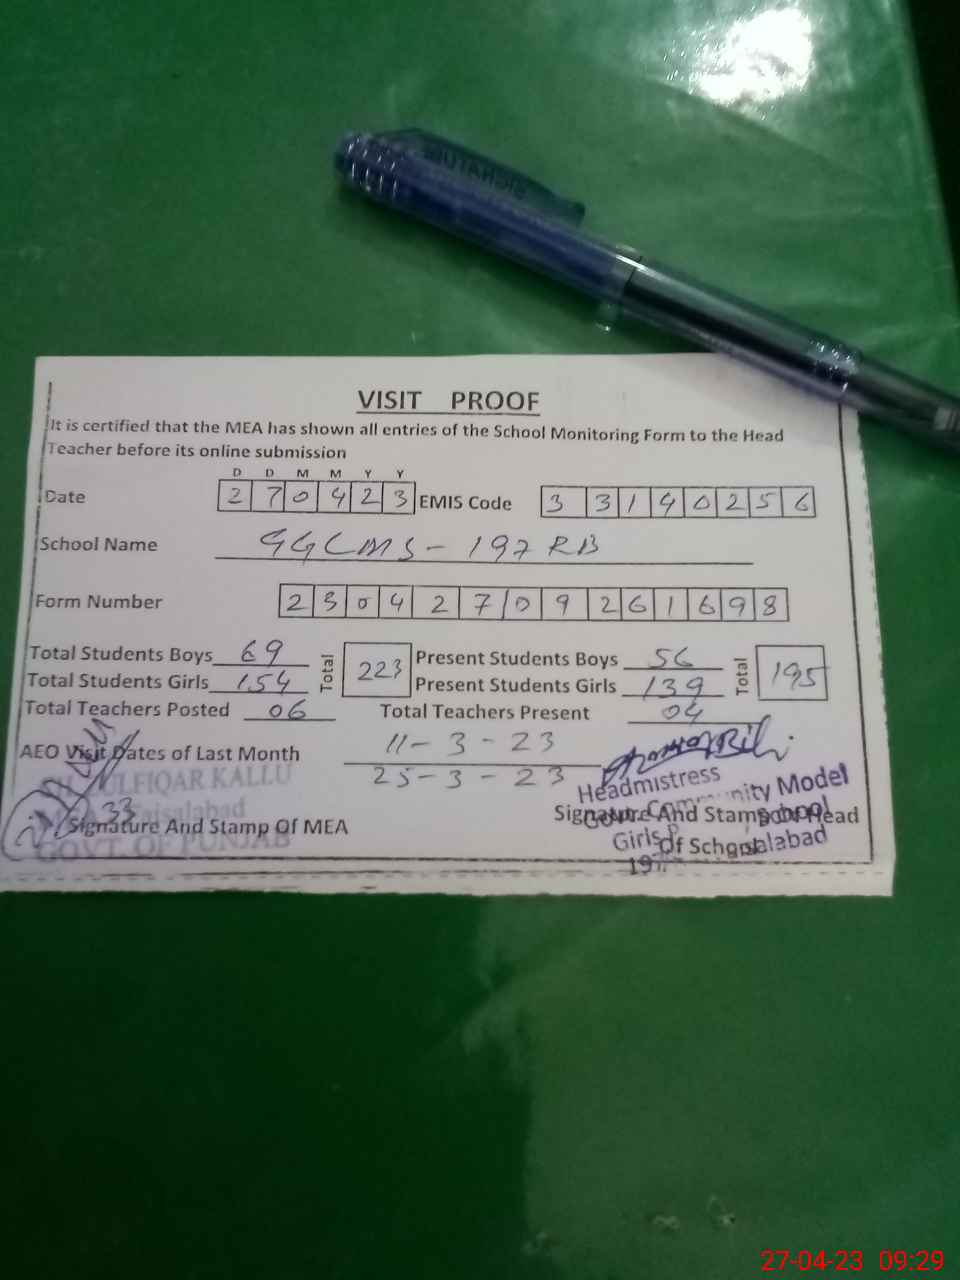 VISIT PROOF
It is certified that the MEA has shown all entries of the School Monitoring Form to the Head
Teacher before its online submission
D D M M Y Y
Date 2 7 0 4 2 3 EMIS Code 3 3 1 4 0 2 5 6
School Name GGCMS - 197 RB
Form Number 2 3 0 4 2 7 0 9 2 6 1 6 9 8
Total Students Boys 69 Total 223 Present Students Boys 56 Total 195
Total Students Girls 154 Present Students Girls 139
Total Teachers Posted 06 Total Teachers Present 04
AEO Visit Dates of Last Month 11-3-23
25-3-23
ULFIQAR KALLU
Faisalabad
GOVT. OF PUNJAB
33
Signature And Stamp Of MEA
Headmistress
Govt. Community Model
Girls School
Signature And Stamp Of Head
Of School
27-04-23 09:29